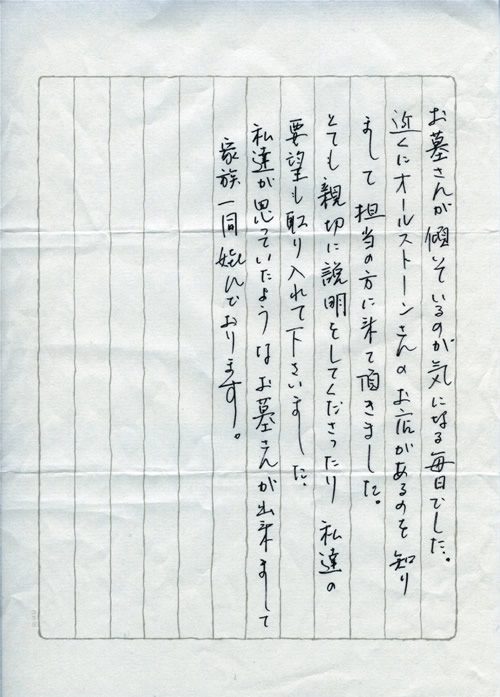 お墓さんが傾いているのが気になる毎日でした。
近くにオールストーンさんのお店があるのを知り
まして担当の方に来て頂きました。
とても親切に説明をしてくださったり私達の
要望も取り入れて下さいました。
私達が思っていたようなお墓さんが出来まして
家族一同喜んでおります。